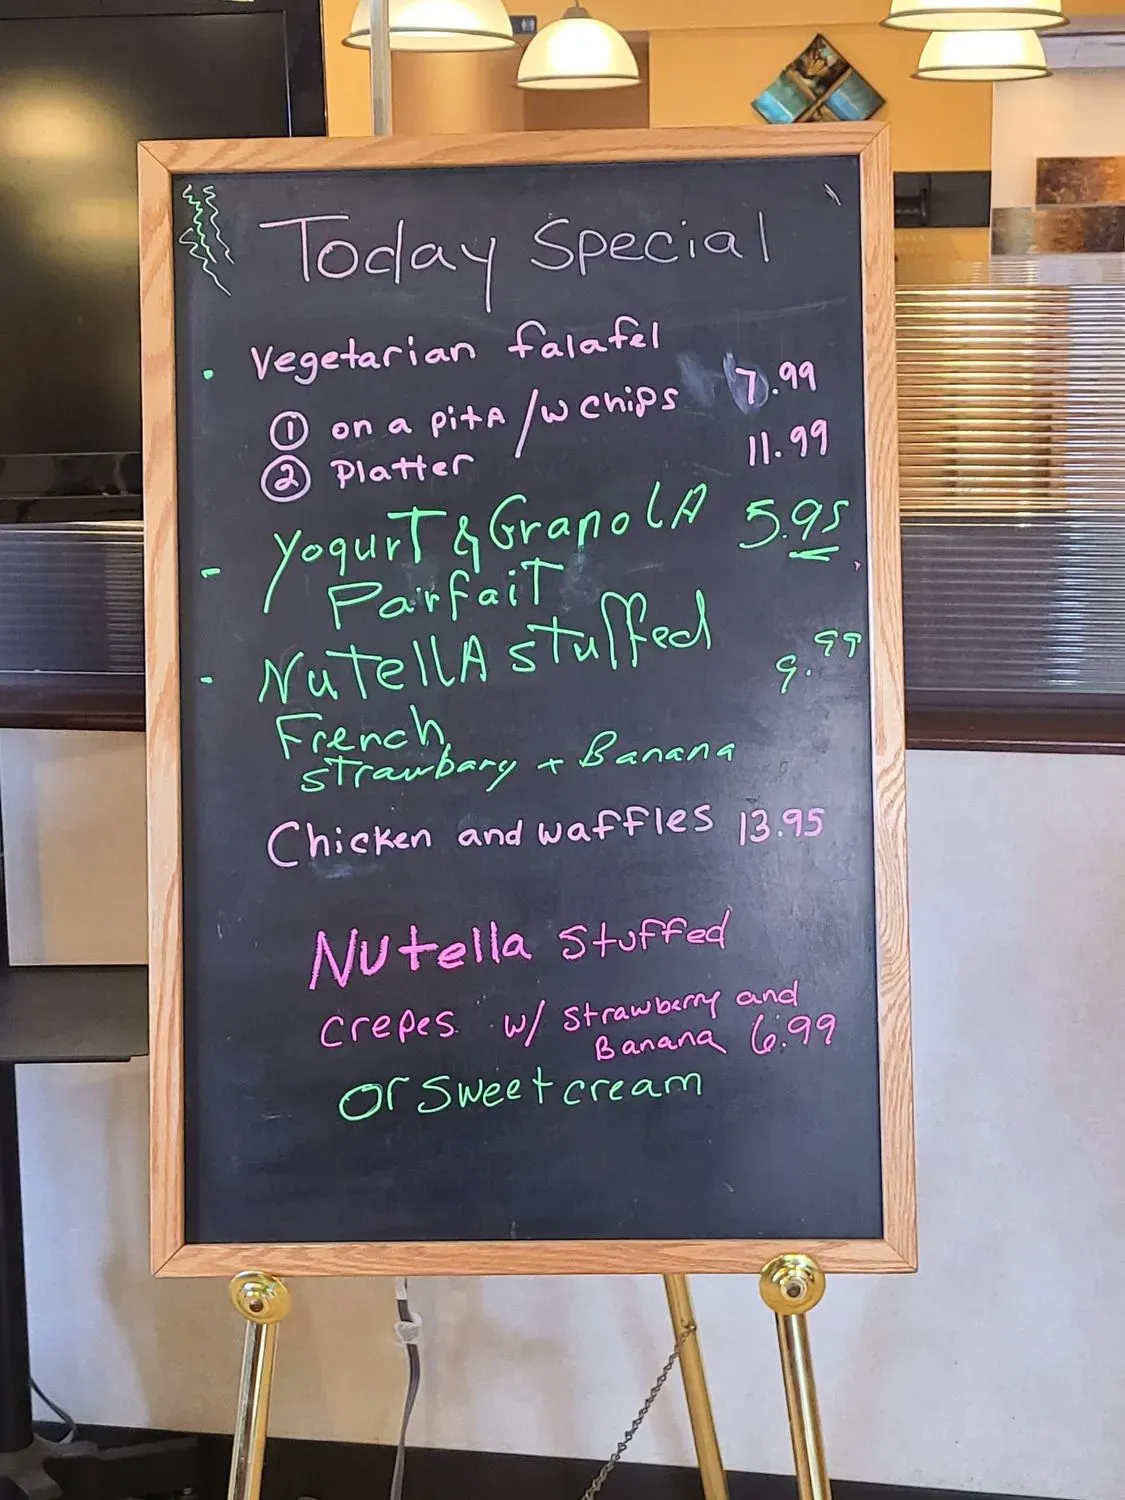 Today Special
Vegetarian falafel
① on a pitA /w chips 7.99
② Platter 11.99
- YogurT & GranolA 5.95
ParfaiT
- NuTellA sTuffed 9.99
French
sTrawbary + Banana
Chicken and waffles 13.95
Nutella stuffed
crepes w/ strawberry and
Banana 6.99
or sweet cream